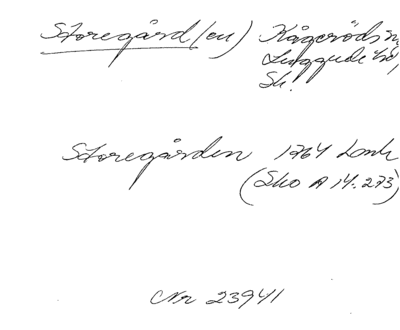 Storegård(en) Kågeröds
Luggude hd,
Sk.
Storegården 1764 Lmk
(Sko A 14:273)
Nr 23941